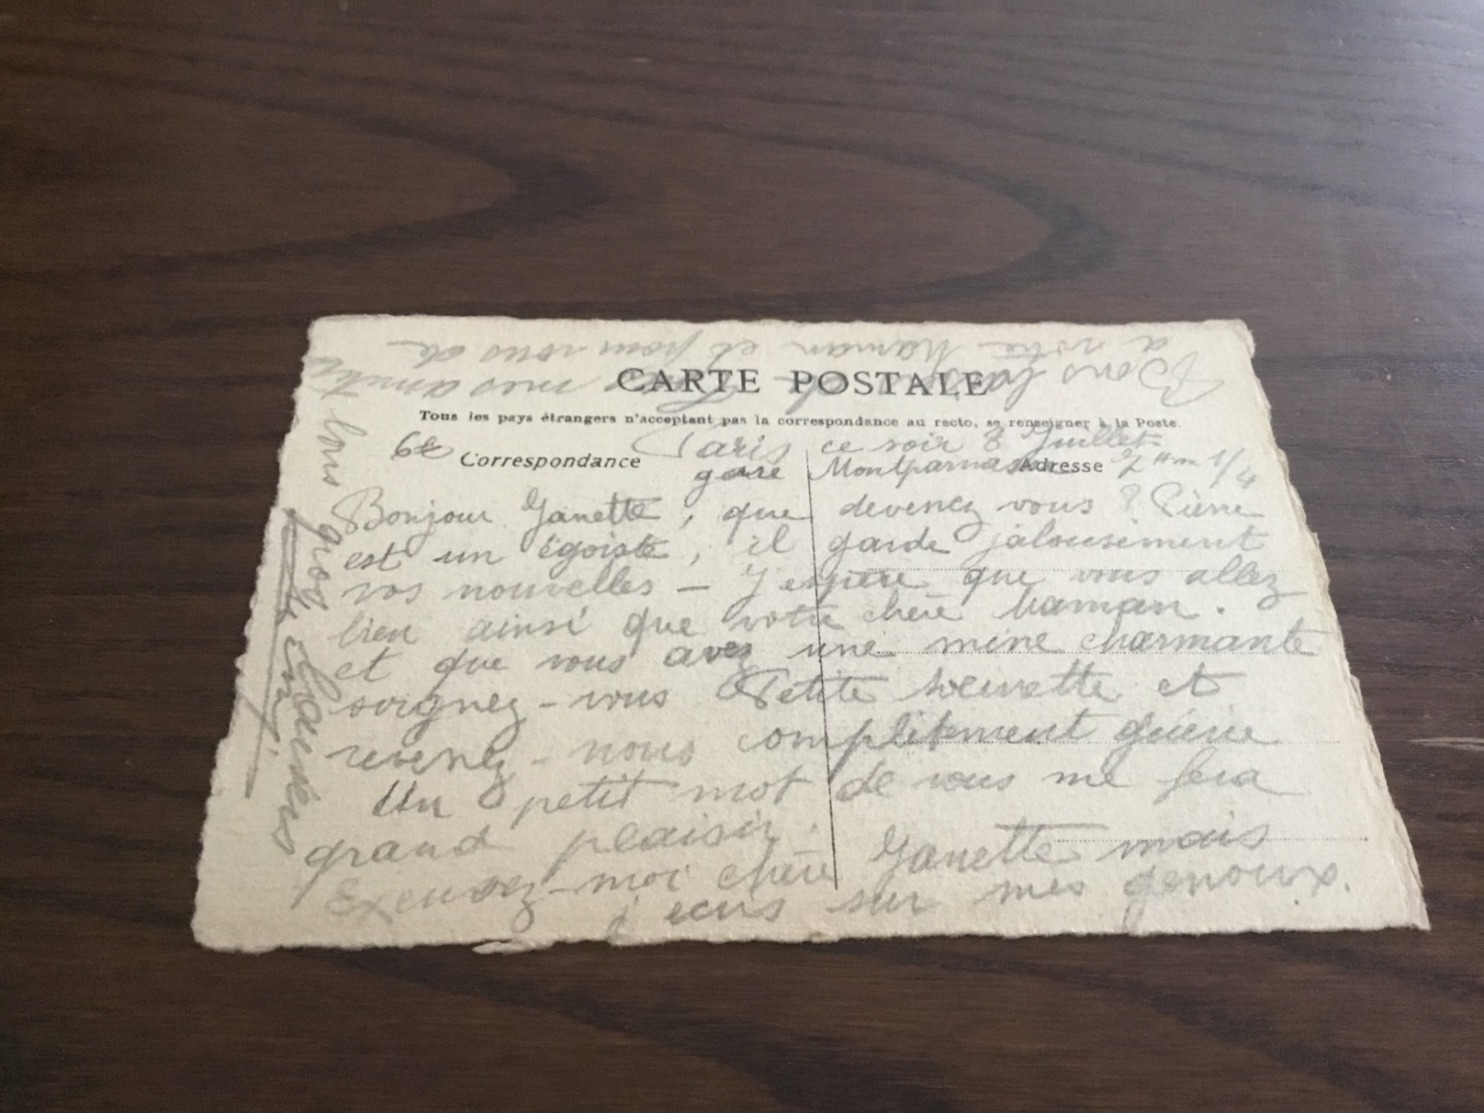 CARTE POSTALE
Tous les pays étrangers n'acceptant pas la correspondance au recto, se renseigner à la Poste.
Paris ce soir 8 Juillet
Correspondance
Adresse
gare Montparnasse 7 H 1/4
Bonjour Ganette, que devenez vous ? Pierre
est un égoiste, il garde jalousement
vos nouvelles - J'espère que vous allez
bien ainsi que votre chère Maman.
et que vous avez une mine charmante
soignez-vous Petite soeurette et
revenez-nous complètement guérie
Un petit mot de vous me fera
grand plaisir.
Excusez-moi chère Ganette mais
j'écris sur mes genoux.
Bons baisers
à votre Maman et pour vous de
mes amitiés
bons gros baisers